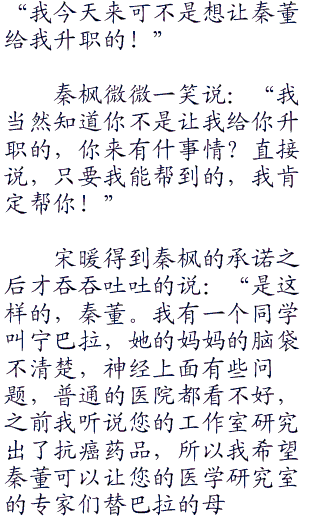 “我今天来可不是想让秦董
给我升职的！”
秦枫微微一笑说：“我
当然知道你不是让我给你升
职的，你来有什事情？直接
说，只要我能帮到的，我肯
定帮你！”
宋暖得到秦枫的承诺之
后才吞吞吐吐的说：“是这
样的，秦董。我有一个同学
叫宁巴拉，她的妈妈的脑袋
不清楚，神经上面有些问
题，普通的医院都看不好，
之前我听说您的工作室研究
出了抗癌药品，所以我希望
秦董可以让您的医学研究室
的专家们替巴拉的母